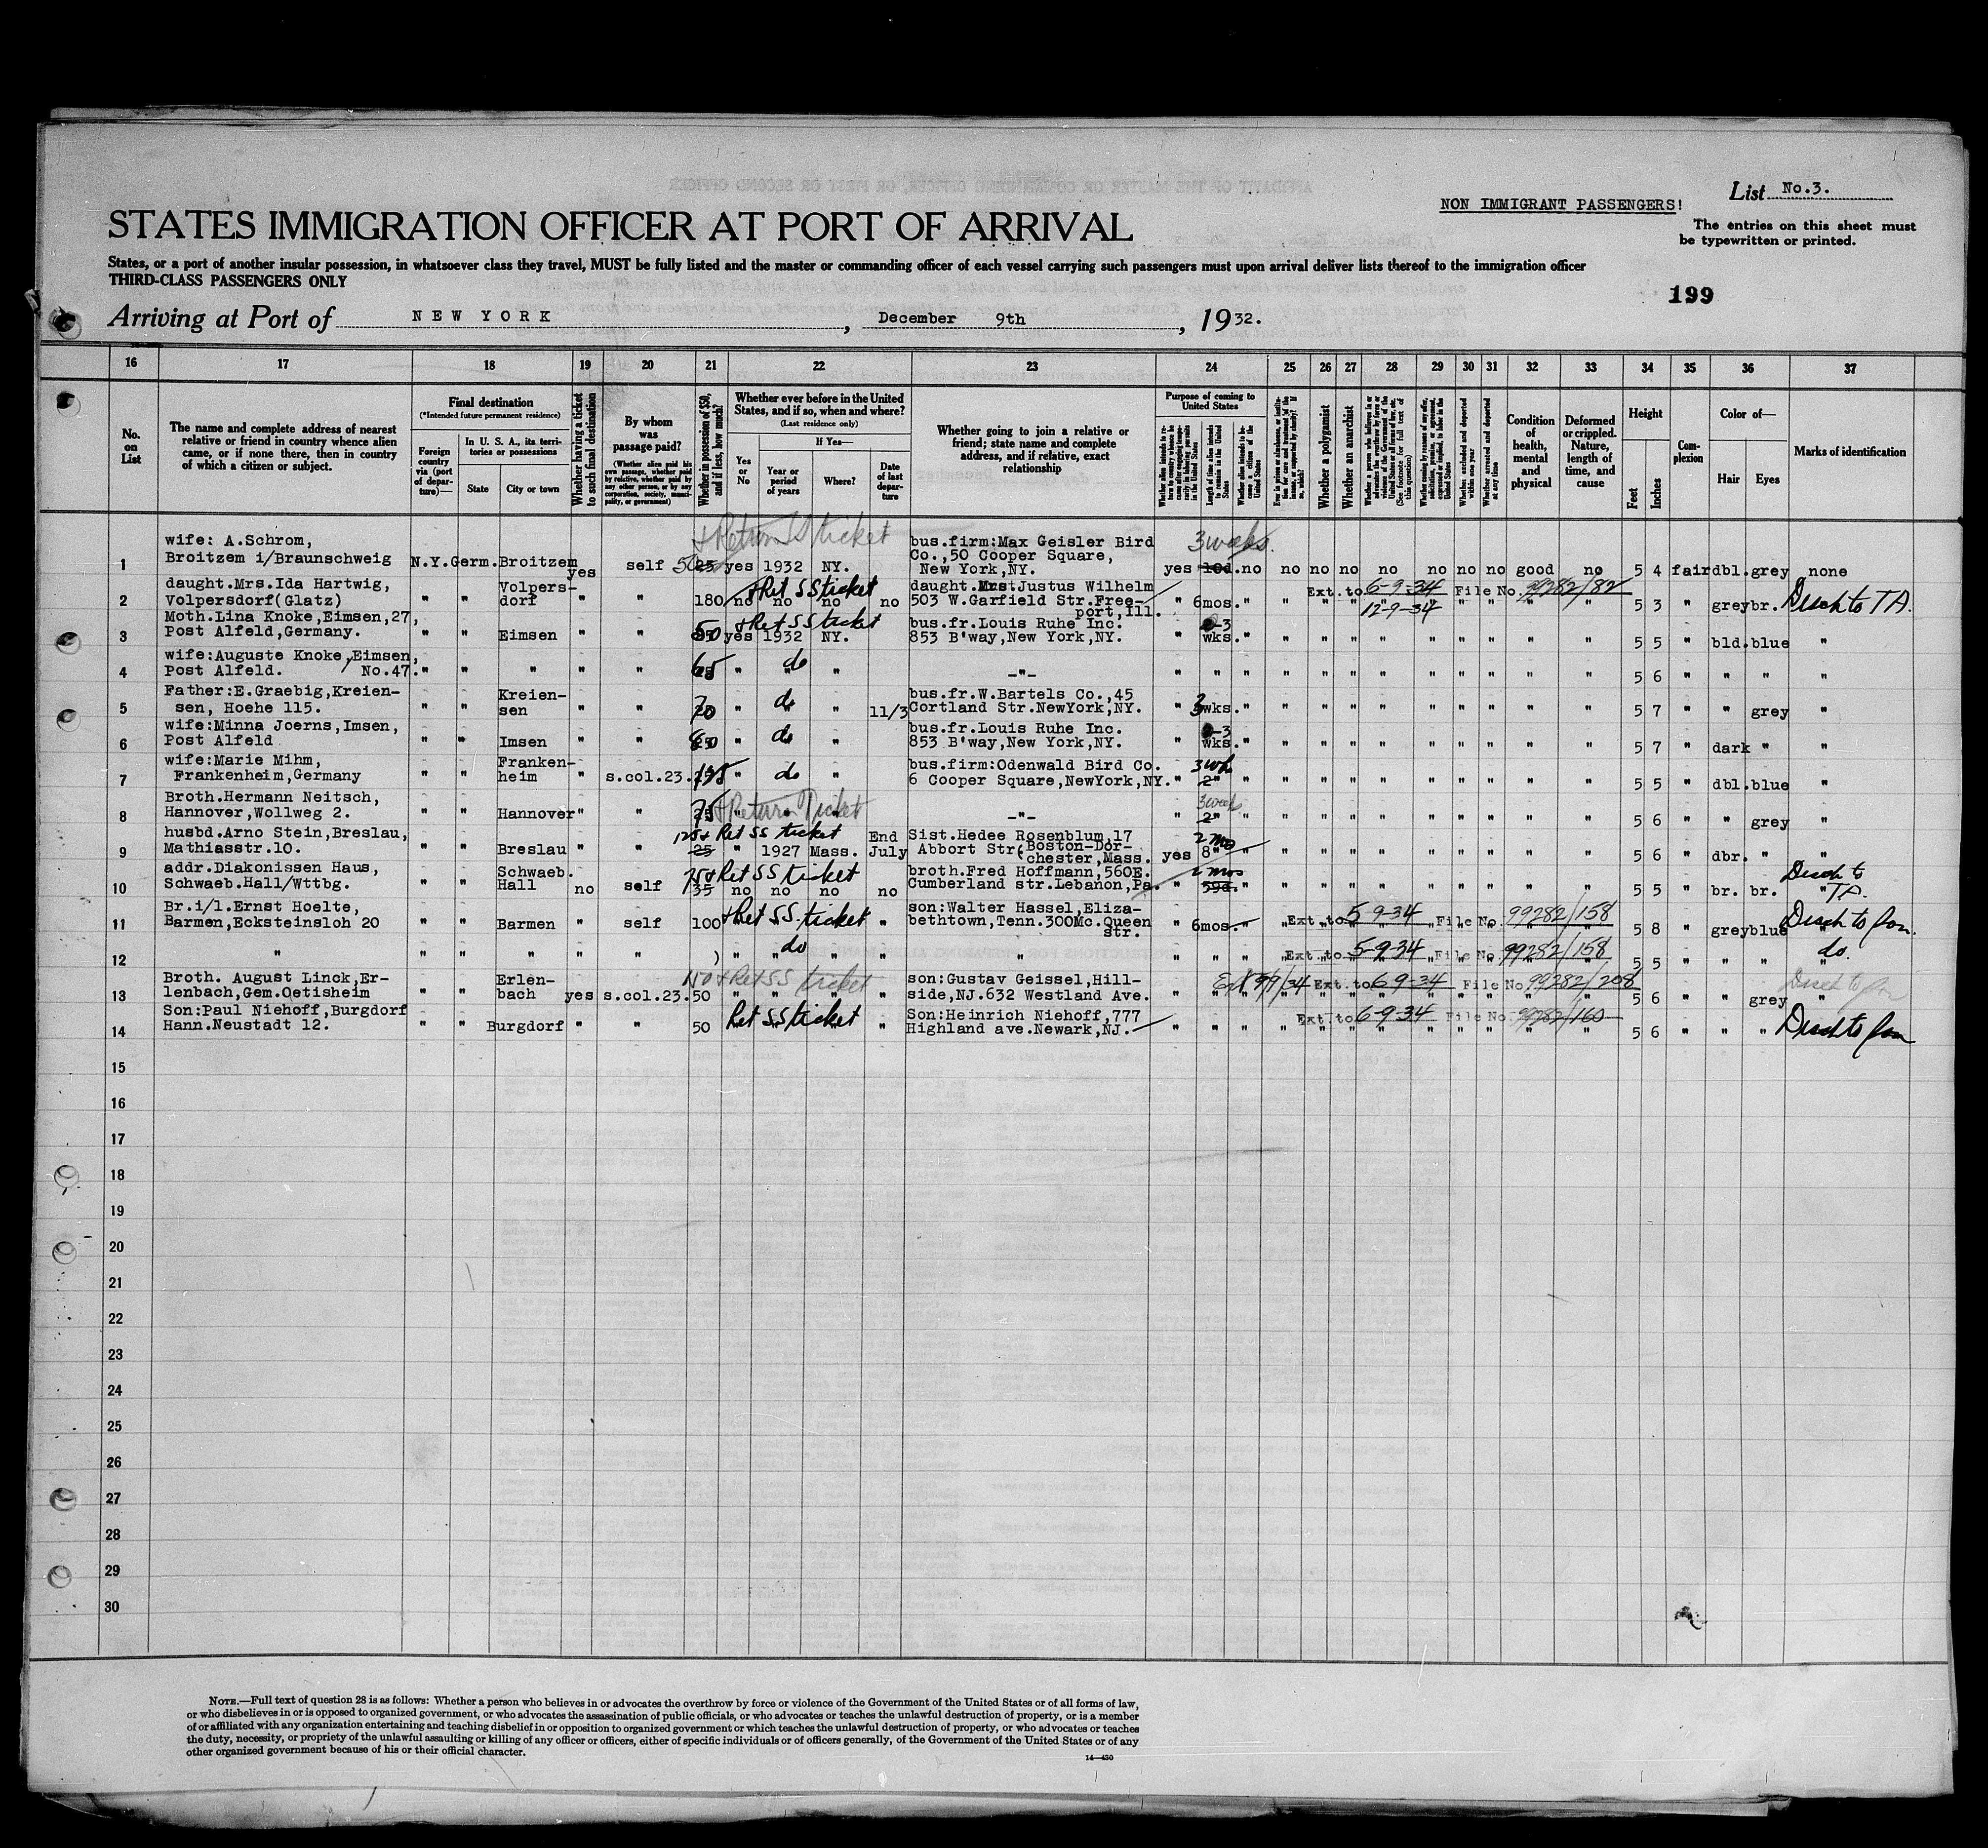 List No.3.
NON IMMIGRANT PASSENGERS!
STATES IMMIGRATION OFFICER AT PORT OF ARRIVAL
The entries on this sheet must
be typewritten or printed.
States, or a port of another insular possession, in whatsoever class they travel, MUST be fully listed and the master or commanding officer of each vessel carrying such passengers must upon arrival deliver lists thereof to the immigration officer
THIRD-CLASS PASSENGERS ONLY
199
Arriving at Port of NEW YORK, December 9th, 1932.
16 17 18 19 20 21 22 23 24 25 26 27 28 29 30 31 32 33 34 35 36 37
No. on List
The name and complete address of nearest relative or friend in country whence alien came, or if none there, then in country of which a citizen or subject.
Final destination
(*Intended future permanent residence)
Foreign country via (port of departure)—
In U. S. A., its territories or possessions
State
City or town
Whether having a ticket to such final destination
By whom was passage paid?
(Whether alien paid his own passage, whether paid by relative, whether paid by any other person, or by any corporation, society, municipality, or government)
Whether in possession of $50, and if less, how much?
Whether ever before in the United States, and if so, when and where?
(Last residence only)
Yes or No
If Yes—
Year or period of years
Where?
Date of last departure
Whether going to join a relative or friend; state name and complete address, and if relative, exact relationship
Purpose of coming to United States
Length of time alien intends to remain in the United States
Whether alien intends to become a citizen of the United States
Whether a polygamist
Whether an anarchist
Whether excluded and deported within one year
Whether arrested and deported at any time
Condition of health, mental and physical
Deformed or crippled. Nature, length of time, and cause
Height
Feet
Inches
Complexion
Color of—
Hair
Eyes
Marks of identification
+ Return SS ticket 3 weeks.
1 wife: A.Schrom, Broitzem i/Braunschweig N.Y. Germ. Broitzem yes self 50 25 yes 1932 NY. bus.firm:Max Geisler Bird Co.,50 Cooper Square, New York,NY. yes 10d. no no no no no no no no good no 5 4 fair dbl. grey none
2 daught.Mrs.Ida Hartwig, Volpersdorf(Glatz) " " Volpersdorf " " 180 +Ret SS ticket no no no no daught.Mrs.Justus Wilhelm 503 W.Garfield Str.Freeport,Ill. " 6mos. " " " " Ext. to 6-9-34 12-9-34 File No. 99282/82 5 3 " grey br. Disch to TA.
3 Moth.Lina Knoke,Eimsen,27, Post Alfeld,Germany. " " Eimsen " " 50 +Ret SS ticket yes 1932 NY. bus.fr.Louis Ruhe Inc. 853 B'way,New York,NY. " 3 wks. " " " " " " " " " " 5 5 " bld. blue "
4 wife:Auguste Knoke,Eimsen, Post Alfeld. No.47. " " " " " 65 " do " -"- " " " " " " " " " " " " 5 6 " " " "
5 Father:E.Graebig,Kreiensen, Hoehe 115. " " Kreiensen " " 70 " do " 11/3 bus.fr.W.Bartels Co.,45 Cortland Str.NewYork,NY. " 3 wks. " " " " " " " " " " 5 7 " " grey "
6 wife:Minna Joerns,Imsen, Post Alfeld " " Imsen " " 80 " do " bus.fr.Louis Ruhe Inc. 853 B'way,New York,NY. " 3 wks. " " " " " " " " " " 5 7 " dark " "
7 wife:Marie Mihm, Frankenheim,Germany " " Frankenheim " s.col.23. " do " bus.firm:Odenwald Bird Co. 6 Cooper Square,NewYork,NY. " 2" " " " " " " " " " " 5 5 " dbl. blue "
8 Broth.Hermann Neitsch, Hannover,Wollweg 2. " " Hannover " " 75 25 +Return Ticket -"- " 3 week 2" " " " " " " " " " " 5 6 " " grey "
9 husbd.Arno Stein,Breslau, Mathiasstr.10. " " Breslau " " 125+ Ret SS ticket 25 " 1927 Mass. End July Sist.Hedee Rosenblum,17 Abbort Str(Boston-Dorchester,Mass. yes 2 mos 8" " " " " " " " " " " 5 6 " dbr. " "
10 addr.Diakonissen Haus, Schwaeb.Hall/Wttbg. " " Schwaeb. Hall no self 75+ Ret SS ticket 35 no no no no broth.Fred Hoffmann,560E. Cumberland str.Lebanon,Pa. " 2 mos 59d. " " " " " " " " " " 5 5 " br. br. Disch to TA.
11 Br.i/l.Ernst Hoelte, Barmen,Ecksteinsloh 20 " " Barmen " self 100 +Ret SS. ticket " son:Walter Hassel,Elizabethtown,Tenn.300Mc.Queen str. " 6mos. " Ext. to 5-9-34 File No. 99282/158 5 8 " grey blue Disch to
12 " " " " " " ) " do " " " " " " Ext. to 5-9-34 File No. 99282/158 5 5 " " " do.
13 Broth. August Linck,Erlenbach,Gem.Oetisheim " " Erlenbach yes s.col.23. 50 150 +Ret SS ticket " " " " son:Gustav Geissel,Hillside,NJ.632 Westland Ave. " " Ext. to 6-9-34 File No. 99282/208 5 6 " " grey " Disch to
14 Son:Paul Niehoff,Burgdorf Hann.Neustadt 12. " " Burgdorf " " 50 Ret SS ticket " Son:Heinrich Niehoff,777 Highland ave.Newark,NJ. " " " Ext. to 6-9-34 File No. 99282/160 5 6 " " " Disch to
15
16
17
18
19
20
21
22
23
24
25
26
27
28
29
30
NOTE.—Full text of question 28 is as follows: Whether a person who believes in or advocates the overthrow by force or violence of the Government of the United States or of all forms of law,
or who disbelieves in or is opposed to organized government, or who advocates the assassination of public officials, or who advocates or teaches the unlawful destruction of property, or is a member
of or affiliated with any organization entertaining and teaching disbelief in or opposition to organized government or which teaches the unlawful destruction of property, or who advocates or teaches
the duty, necessity, or propriety of the unlawful assaulting or killing of any officer or officers, either of specific individuals or of officers generally, of the Government of the United States or of any
other organized government because of his or their official character.
14—430